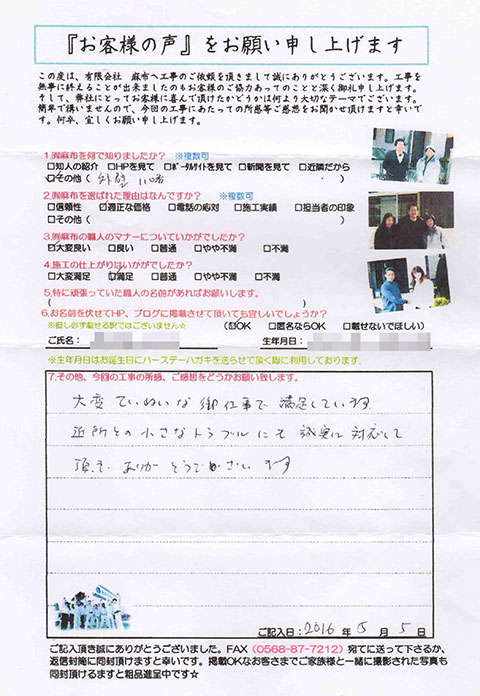 『お客様の声』をお願い申し上げます
この度は、有限会社 麻布へ工事のご依頼を頂きまして誠にありがとうございます。工事を
無事に終えることが出来ましたのもお客様のご協力あってのことと深く御礼申し上げます。
そして、弊社にとってお客様に喜んで頂けたかどうかは何より大切なテーマでございます。
簡単で構いませんので、今回の工事にあたっての所感等ご感想をお聞かせ頂けますと幸いで
す。何卒、宜しくお願い申し上げます。
1.㈲麻布を何で知りましたか? ※複数可
□知人の紹介 □HPを見て □ポータルサイトを見て □新聞を見て □近隣だから
☑その他( 外壁 )
2.㈲麻布を選ばれた理由はなんですか? ※複数可
□信頼性 ☑適正な価格 □電話の応対 □施工実績 □担当者の印象
□その他( )
3.㈲麻布の職人のマナーについていかがでしたか?
☑大変良い □良い □普通 □やや不満 □不満
4.施工の仕上がりはいかがでしたか?
□大変満足 ☑満足 □普通 □やや不満 □不満
5.特に頑張っていた職人の名前があればお願いします。
( )
6.お名前を伏せてHP、ブログに掲載させて頂いても宜しいでしょうか?
※但し必ず載せる訳ではございません☆ (☑OK □匿名ならOK □載せないでほしい)
ご氏名: 生年月日:
※生年月日はお誕生日にバースデーハガキを送らせて頂く際に利用しております。
7.その他、今回の工事の所感、ご感想をどうかお願い致します。
大変ていねいな御仕事で満足しています
近所との小さなトラブルにも誠実に対応して
頂き ありがとうございます
ご記入日:2016年 5月 5日
ご記入頂き誠にありがとうございました。FAX(0568-87-7212)宛てに送って下さるか、
返信封筒に同封頂けますと幸いです。掲載OKなお客さまでご家族様と一緒に撮影された写真も
同封頂けるますと粗品進呈中です☆